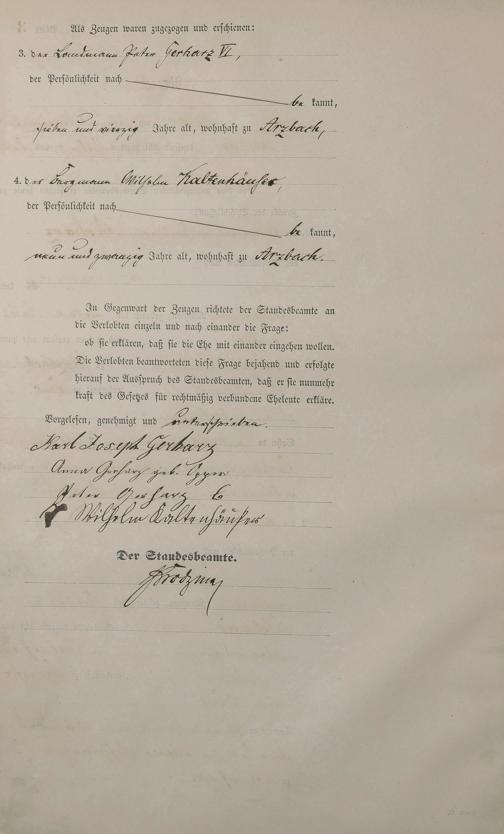 Als Zeugen waren zugezogen und erschienen:
3. der Landmann Peter Gerharz VI,
der Persönlichkeit nach
be kannt,
sieben und vierzig Jahre alt, wohnhaft zu Arzbach,
4. der Bergmann Wilhelm Kaltenhäuser,
der Persönlichkeit nach
be kannt,
neun und zwanzig Jahre alt, wohnhaft zu Arzbach.
In Gegenwart der Zeugen richtete der Standesbeamte an
die Verlobten einzeln und nach einander die Frage:
ob sie erklären, daß sie die Ehe mit einander eingehen wollen.
Die Verlobten beantworteten diese Frage bejahend und erfolgte
hierauf der Ausspruch des Standesbeamten, daß er sie nunmehr
kraft des Gesetzes für rechtmäßig verbundene Eheleute erkläre.
Vorgelesen, genehmigt und unterschrieben.
Karl Joseph Gerharz
Anna Gerharz geb.
Peter Gerharz 6
Wilhelm Kaltenhäuser
Der Standesbeamte.